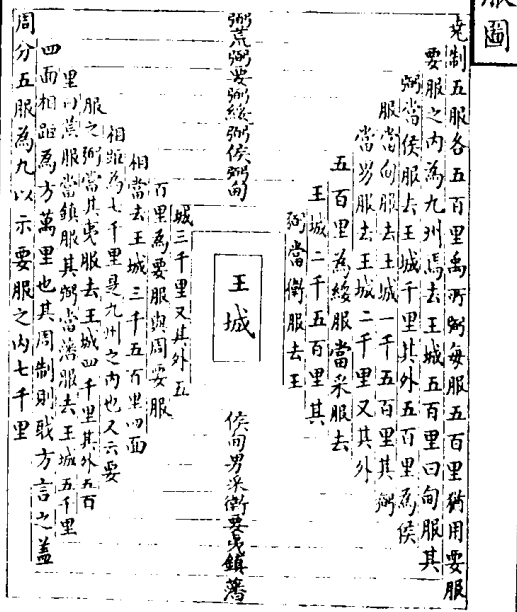 服圖
堯制五服各五百里禹所弼每服五百里猶用要服
要服之內為九州焉去王城五百里曰甸服其
弼當侯服去王城千里其外五百里為侯
服當甸服去王城一千五百里其弼
當男服去王城二千里又其外
五百里為綏服當采服去
王城二千五百里其
弼當衛服去王
弼荒弼要弼綏弼侯弼甸
王城
侯甸男采衛要夷鎮藩
城三千里又其外五
百里為要服與周要服
相當去王城三千五百里四面
相距為七千里是九州之內也又云要
服之弼當其夷服去王城四千里其外五百
里曰荒服當鎮服其弼當藩服去王城五千里
四面相距為方萬里也其周制則職方言之蓋
周分五服為九以示要服之內七千里